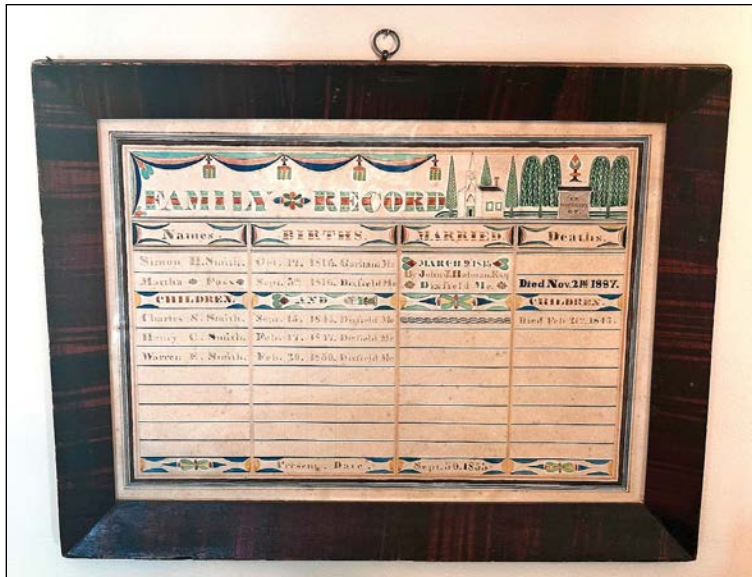 FAMILY RECORD
Names. BIRTHS. MARRIED Deaths.
Simon H. Smith. Oct. 12, Gorham Me MARCH 9. 1845
By John J. Holman, Esq
Martha Foss Sept. Dixfield Me Dixfield Me. Died Nov. 2nd 1887.
CHILDREN. AND CHILDREN.
Charles S. Smith. Sept. 15, 1845. Dixfield Me Died Feb.
Henry C. Smith. Feb. 17, 1847. Dixfield Me
Warren E. Smith. Feb. Dixfield Me
Present. Date. Sept.